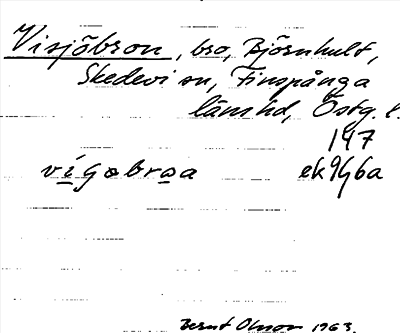 Visjöbron, bro, Björnhult,
Skedevi sn, Finspånga
länshd, Östg. l.
147
vígəbrɷa ek 9G6a
Bernt Olsson 1963.